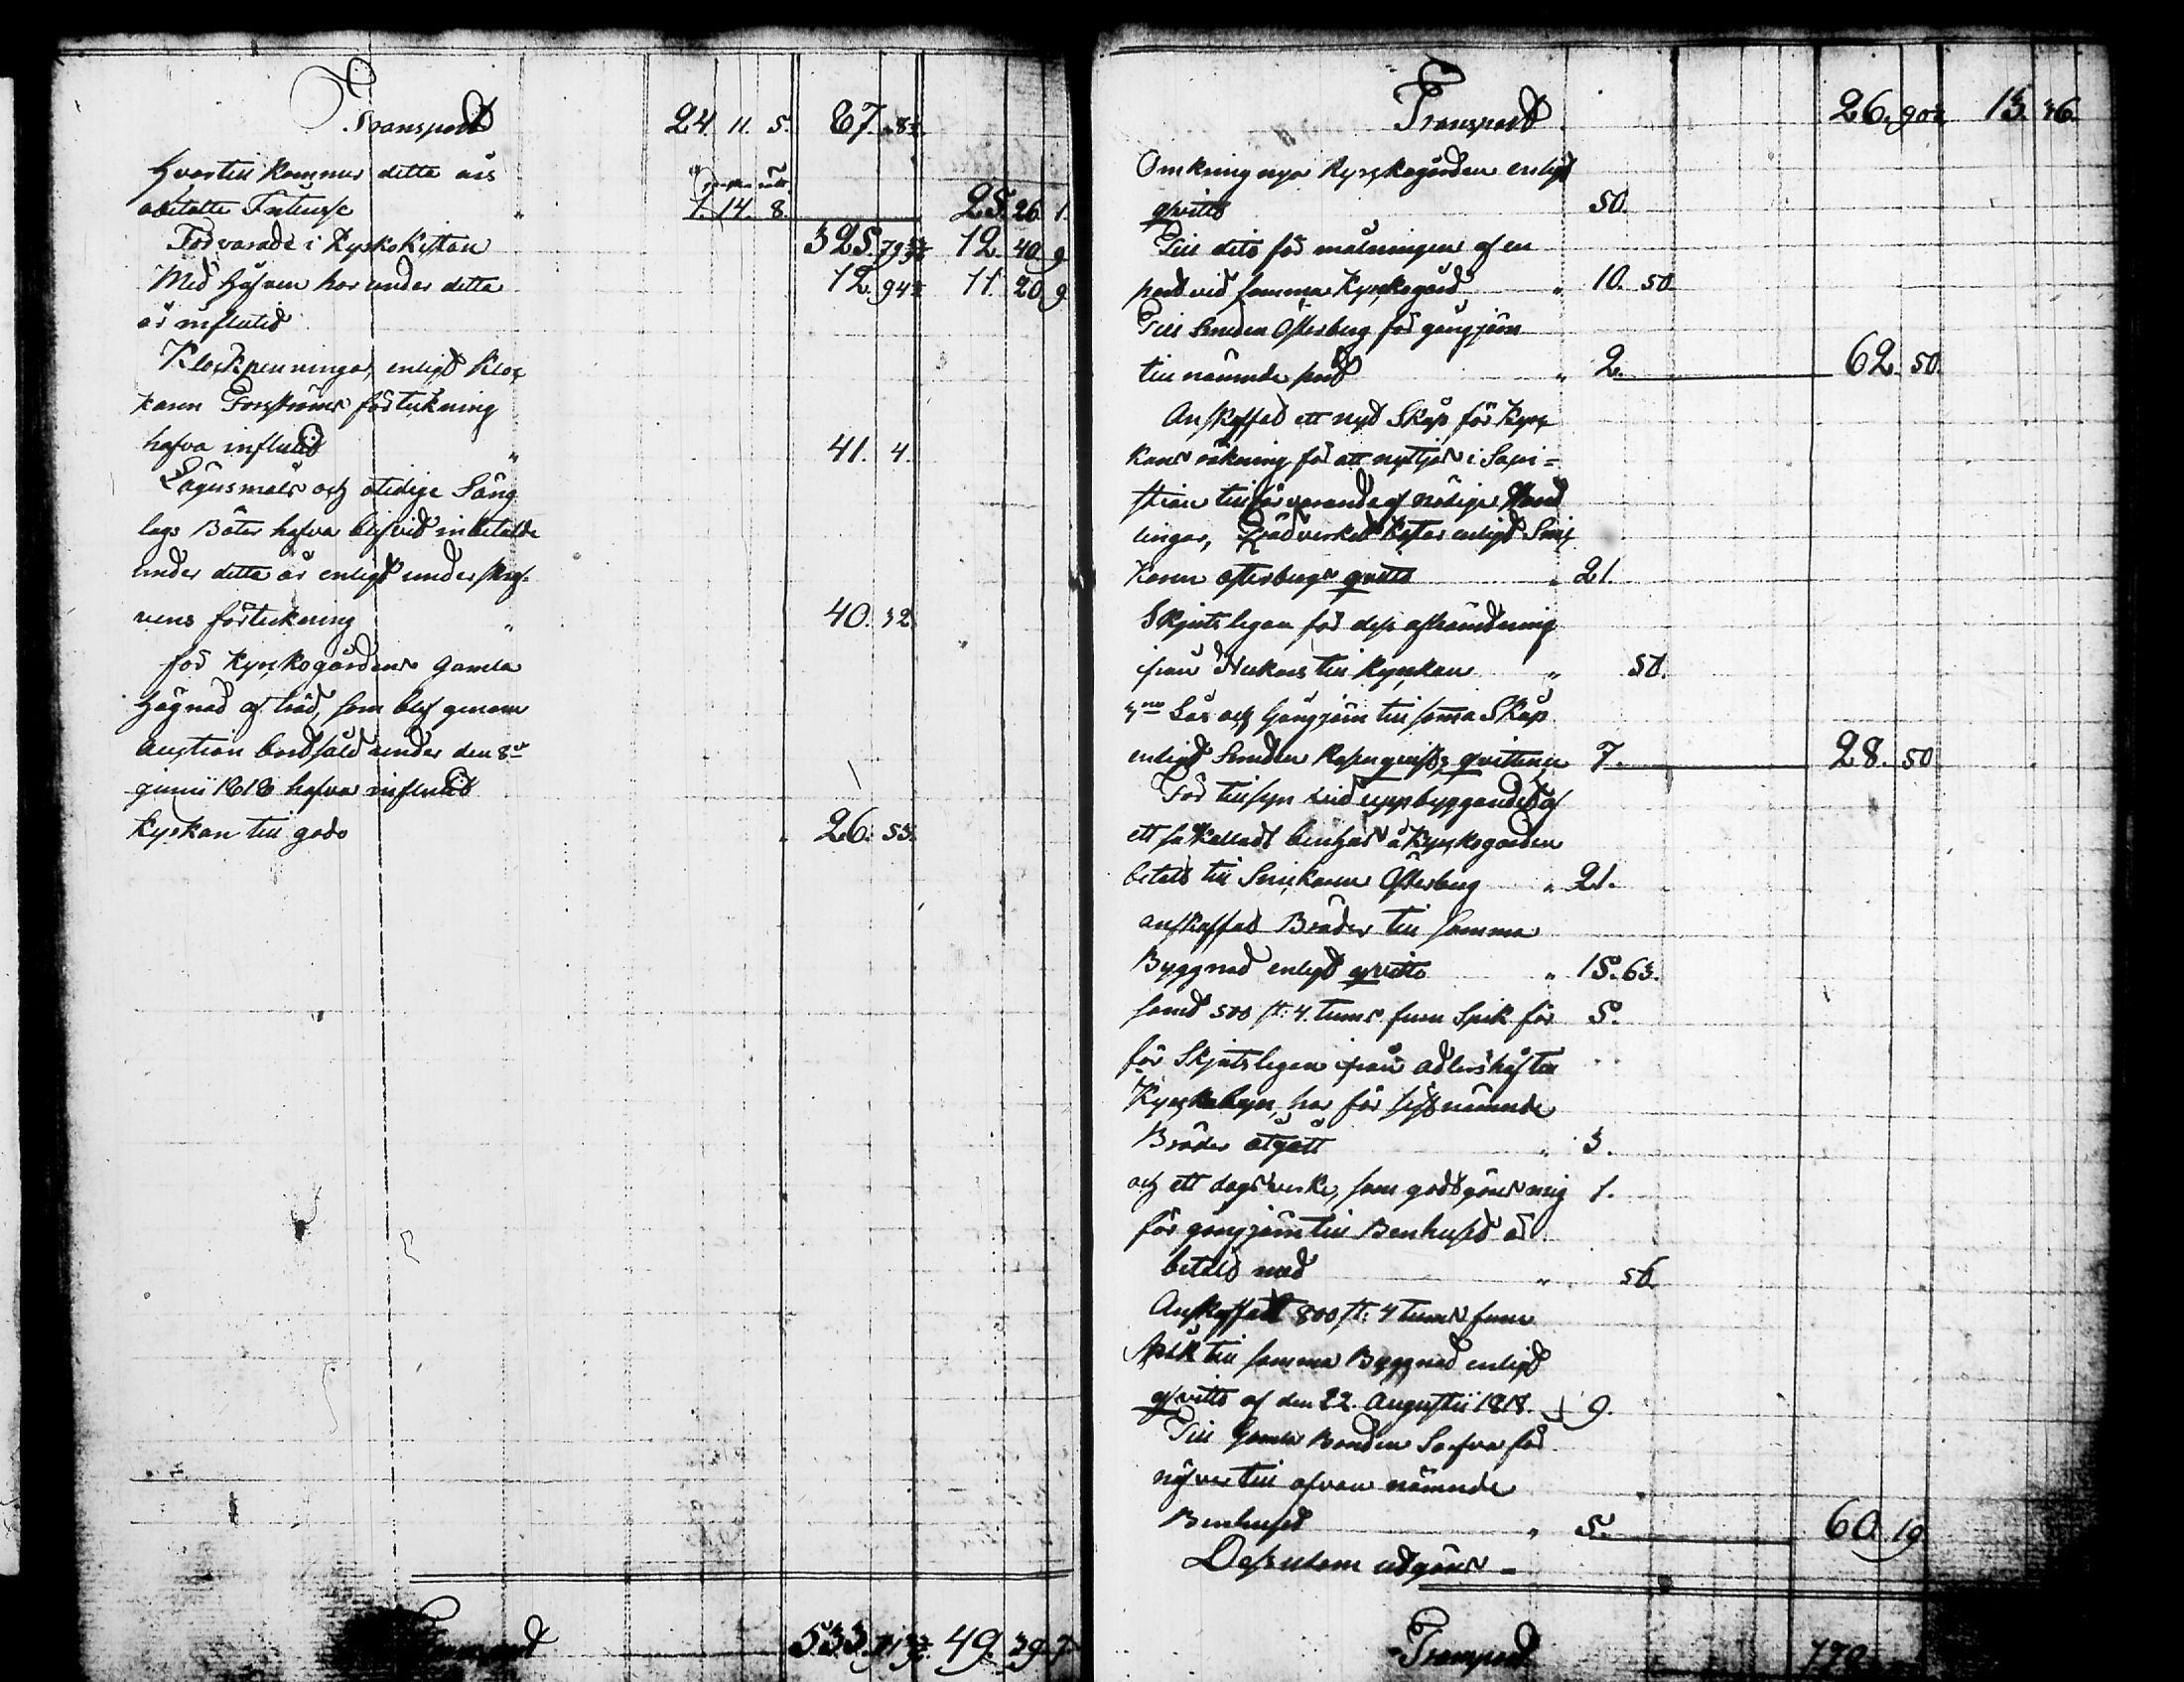 Transport 24. 11. 5. 87. 8½.
Hvartill kommer detta års
obetalte Intresse 1. 14. 8. 25. 26. 1.
Förvarade i Kyrko Kistan 325. 79 12. 40. 9
Med Håfven har under detta 12. 94½ 11. 20. 9
år influtid
Klockpenningar, enligt Kloc
karen Forsströms förtekning
hafva influtid " 41. 4.
Lägersmåls och otidige Säng
lags Böter hafva blifvid inbetalde
under detta år enligt underskrif-
vens förtekning " 40. 32.
för Kyrckogårdens gamla
hägnad af träd, som blef genom
Auction bordtsåld under den 8de
junii 1818 hafva influtid
Kyrkan till godo 26. 53.
533. 49. 39. 7
Transport 26. 90½ 13. 36.
Omkring nya Kyrckogården enligt
qvitto 50.
Till dito för målningen af en
port vid samma Kyrckogård " 10. 50
Till Smeden Österberg för gångjern
till nämnde port " 2. 62. 50.
Anskaffad ett nytt Skåp för Kyrc
kans räkning för att nyttjas i Sacri-
stian till förvarande af nödige Hand
lingar, Trädverket kostar enligt Snic
karen Österbergs qvitto " 21.
Skjutslegan för dess afhämtning
ifrån Nukars till Kyrckan " 50.
Lås och Gångjern till samma Skåp
enligt Smeden Rosenqvists qvittence 7. 28. 50
För tillsyn vid uppbyggandet af
ett så kalladt benhus å Kyrckogården
betalt till Snickaren Österberg " 21.
anskaffad Bräder till samma
Byggnad enligt qvitto " 15. 63.
samt 500 st: 4. tums Spik för 5.
för Skjutslegan ifrån till
Kyrckobyn, har för sist nämnde
Bräder åtgått " 3.
och ett dagsverke, som godtgöres mig 1.
för gångjern till Benhuset är
betalt med " 56
Anskaffadt 800 st: 4 tums
spik till samma Byggnad enligt
qvitto af den 22. Augustii 1818. 9.
Till Gamla Bonden för
näfver till ofvan nämnde
Benhuset " 5. 60. 19
Dessutom utgörs -
Transport 170